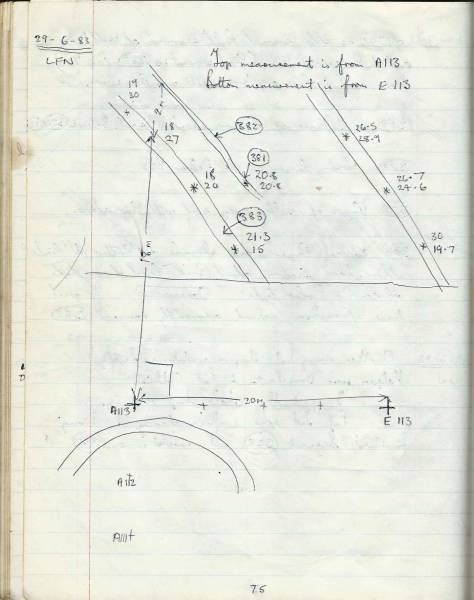 29-6-83
LFN
Top measurement is from A113
Bottom measurement is from E113
19
30
2m
18
27
382
381
20.8
20.8
26.5
28.9
18
24
26.7
24.6
383
21.3
15
30
19.7
18m
A113
20m
E 113
A112
A111
75